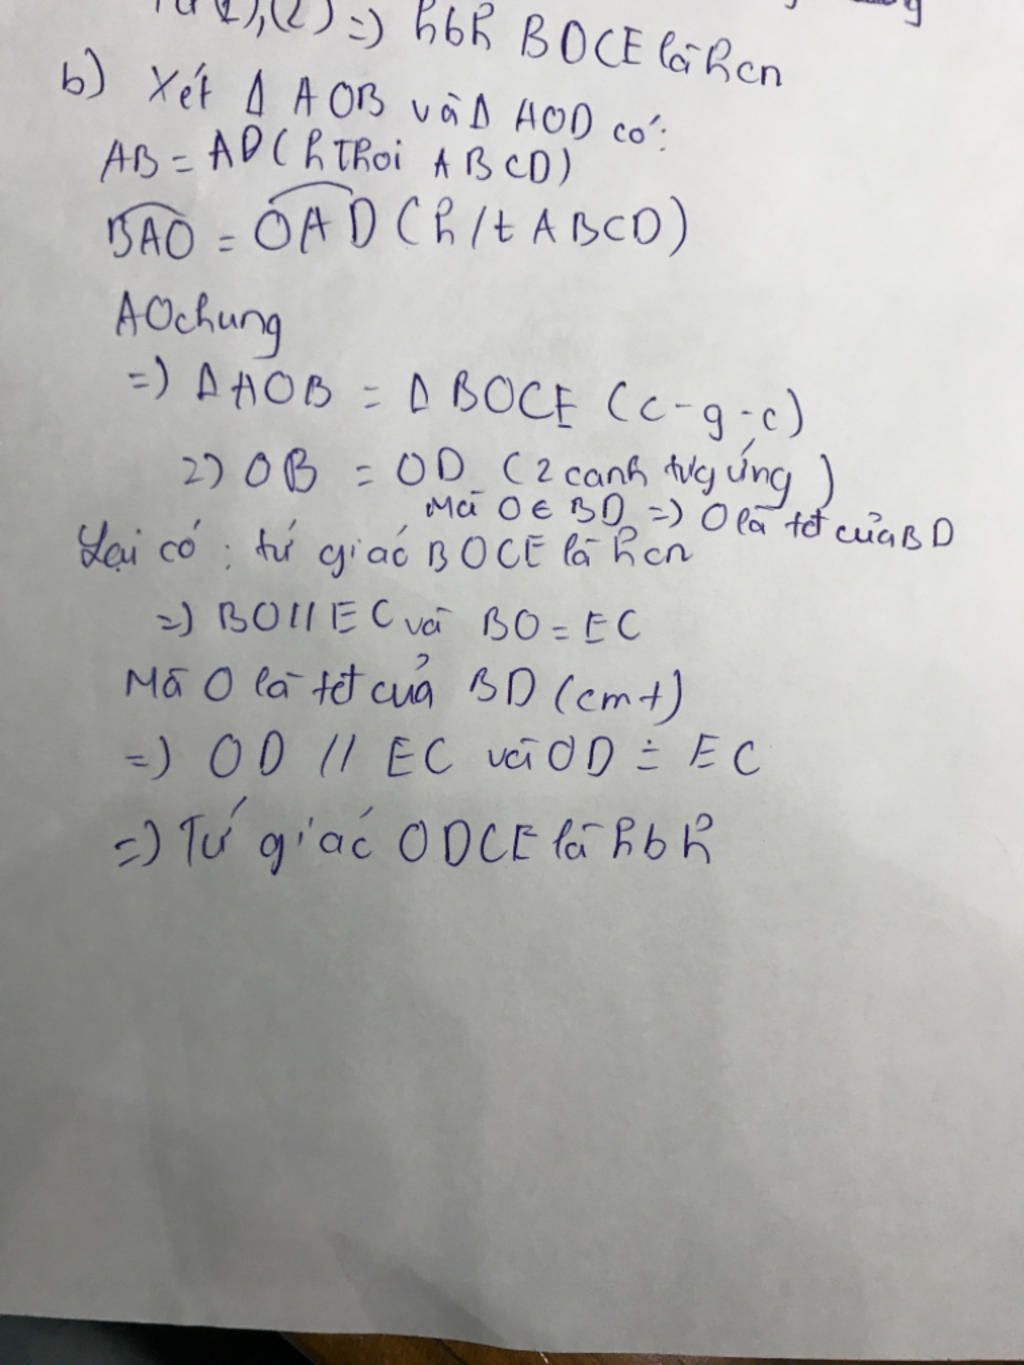 (2) => hbh BOCE là hcn
b) Xét Δ AOB và Δ AOD có:
AB = AD (h thoi ABCD)
BAO = OAD (h/t ABCD)
AO chung
=> Δ AOB = Δ BOCE (c-g-c)
=> OB = OD (2 canh tưg ứng)
Mà O ∈ BD => O là tđ của BD
Lại có: tứ giác BOCE là hcn
=> BO // EC và BO = EC
Mà O là tđ của BD (cmt)
=> OD // EC và OD = EC
=> Tứ giác ODCE là hbh